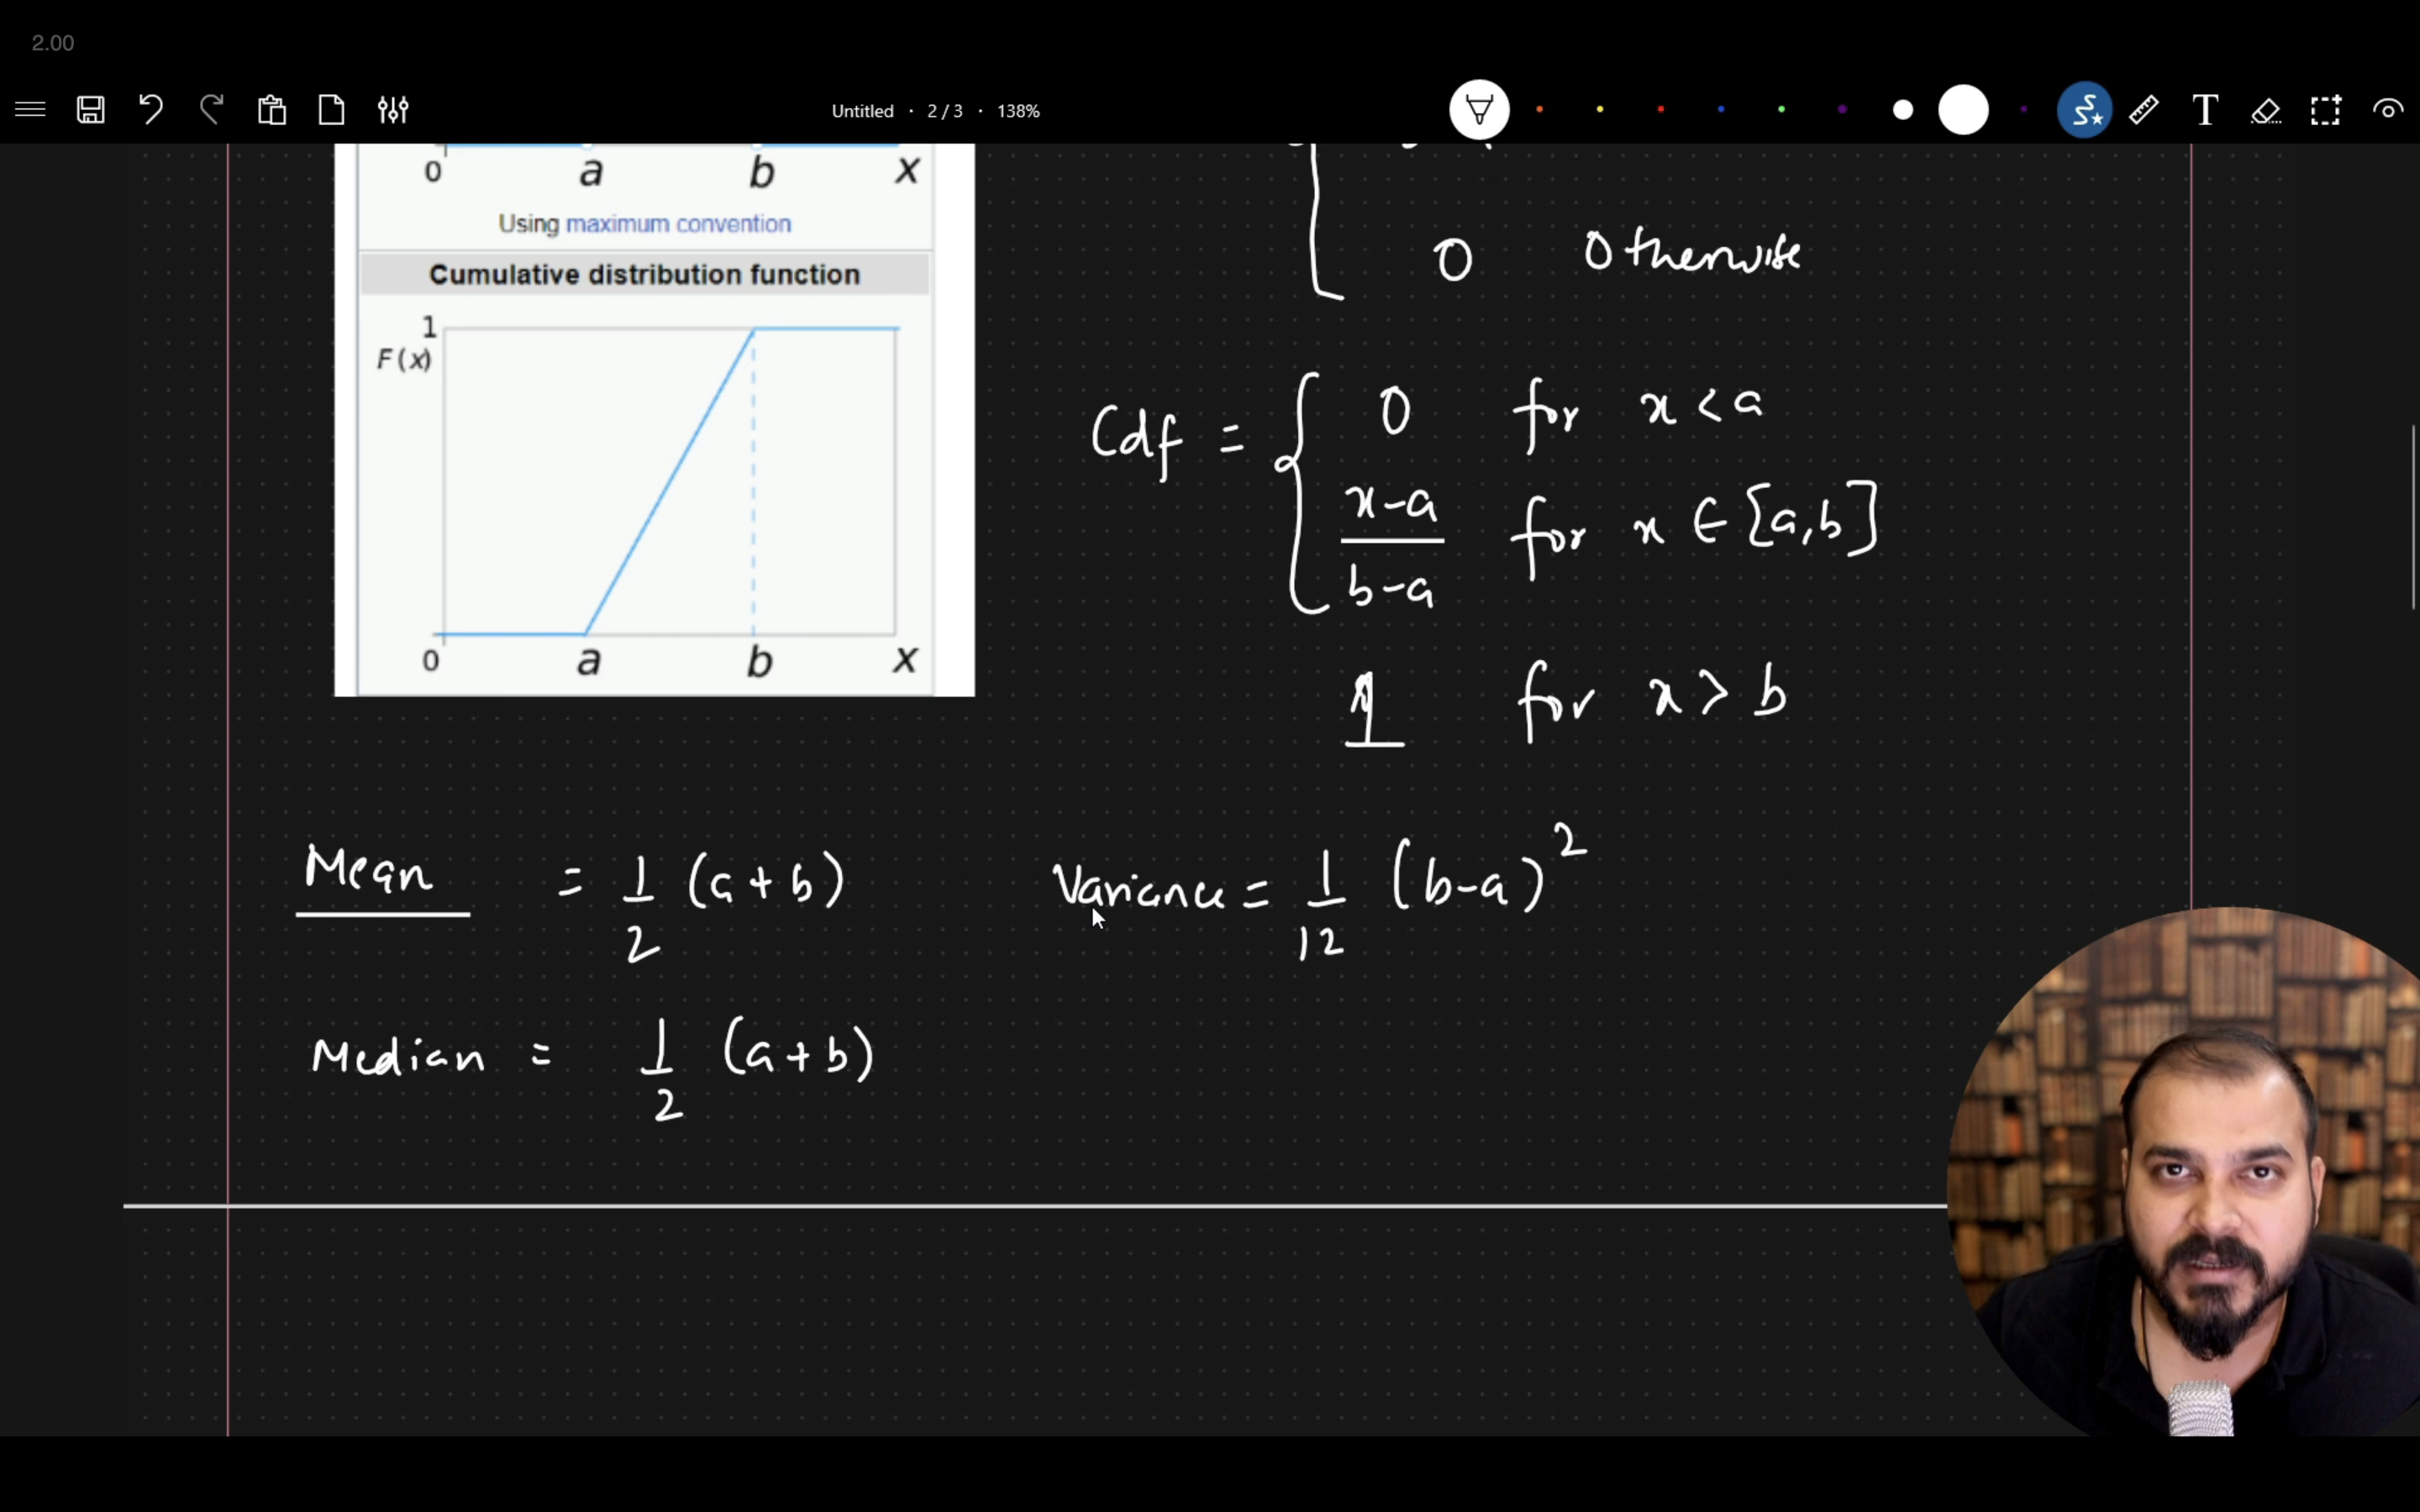 2.00
Untitled · 2 / 3 · 138%
T
0 a b x
Using maximum convention
Cumulative distribution function
1
F(x)
0 a b x
0 Otherwise
Cdf = { 0 for x < a
x-a / b-a for x ∈ [a,b]
1 for x > b
Mean = 1/2 (a+b)
Variance = 1/12 (b-a)²
Median = 1/2 (a+b)